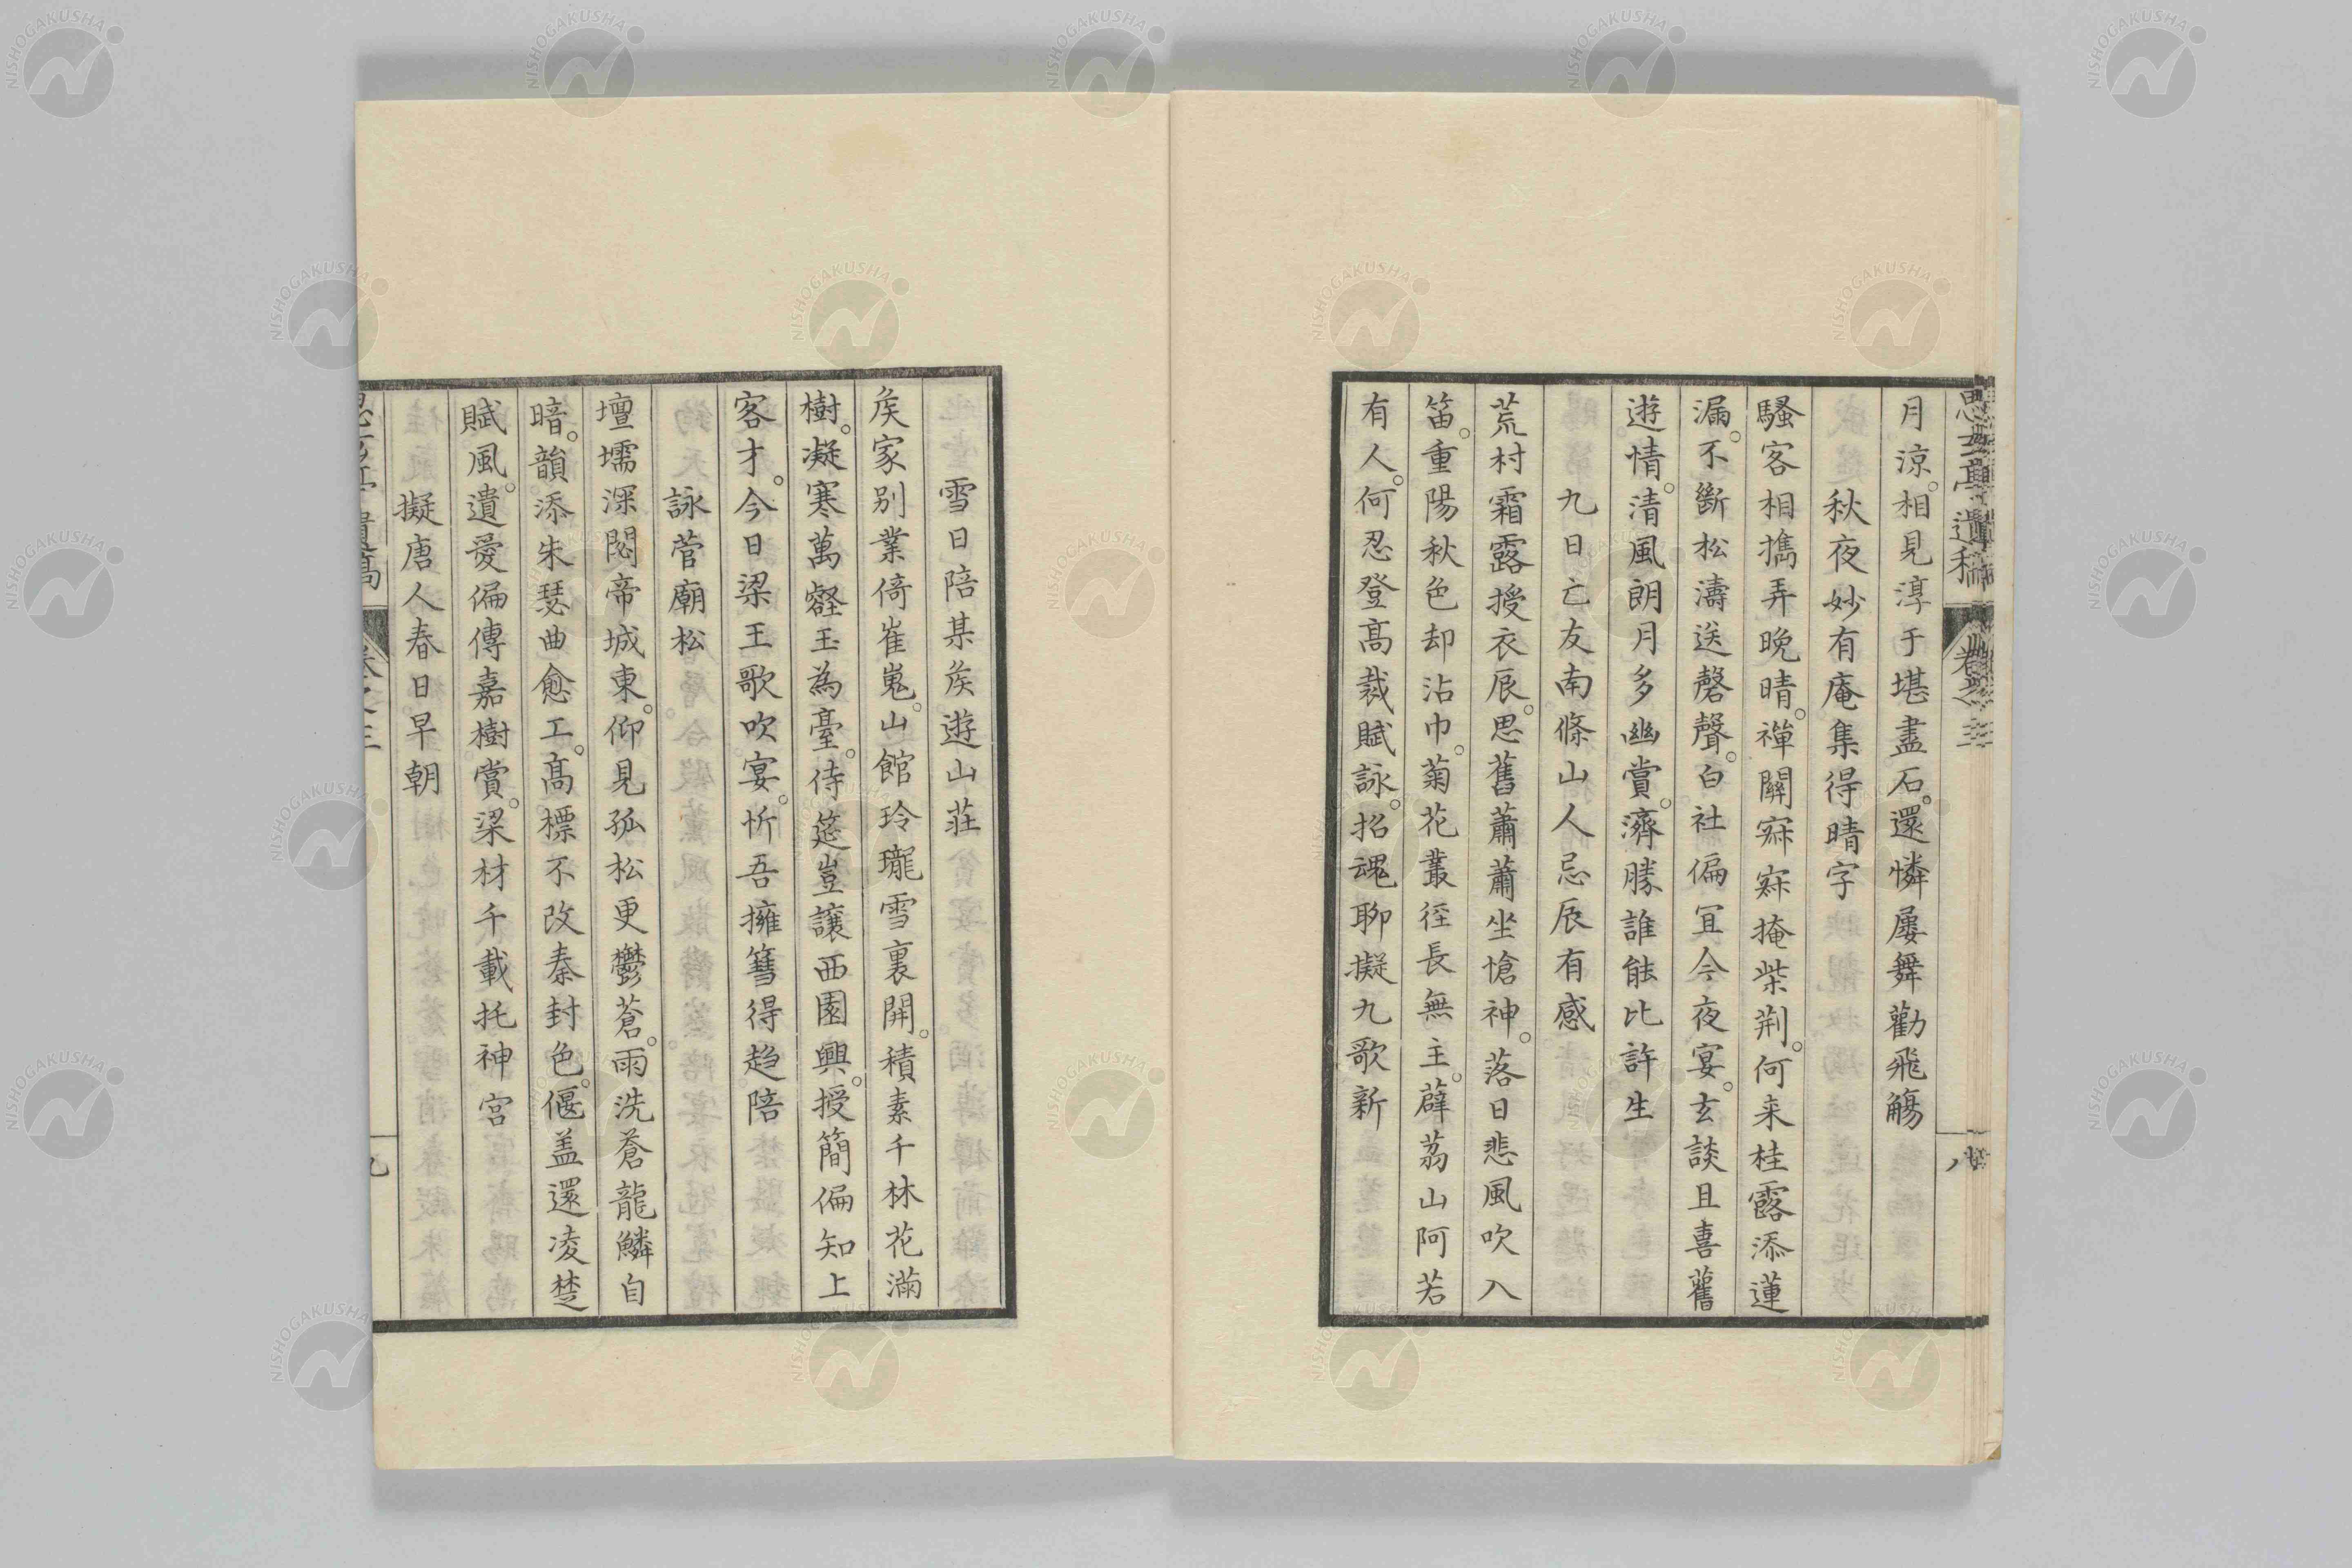 月涼。相見淳于堪盡石。還憐屢舞勸飛觴
秋夜妙有庵集得晴字
騷客相携弄晩晴。禪關寂寂掩柴荆。何来桂露添蓮
漏。不斷松濤送磬聲。白社偏宜今夜宴。玄談且喜舊
遊情。清風朗月多幽賞。濟勝誰能比許生
九日亡友南條山人忌辰有感
荒村霜露授衣辰。思舊蕭蕭坐愴神。落日悲風吹入
笛。重陽秋色却沾巾。菊花叢徑長無主。薜荔山阿若
有人。何忍登髙裁賦詠。招魂聊擬九歌新
雪日陪某矦遊山莊
矦家別業倚崔嵬。山館玲瓏雪裏開。積素千林花滿
樹。凝寒萬壑玉為臺。侍筵豈讓西園興。授簡偏知上
客才。今日梁王歌吹宴。忻吾擁篲得趋陪
詠菅廟松
壇壖深閟帝城東。仰見孤松更鬱蒼。雨洗蒼龍鱗自
暗。韻添朱瑟曲愈工。髙標不改秦封色。偃盖還凌楚
賦風。遺愛偏傳嘉樹賞。梁材千載托神宮
擬唐人春日早朝
NISHOGAKUSHA